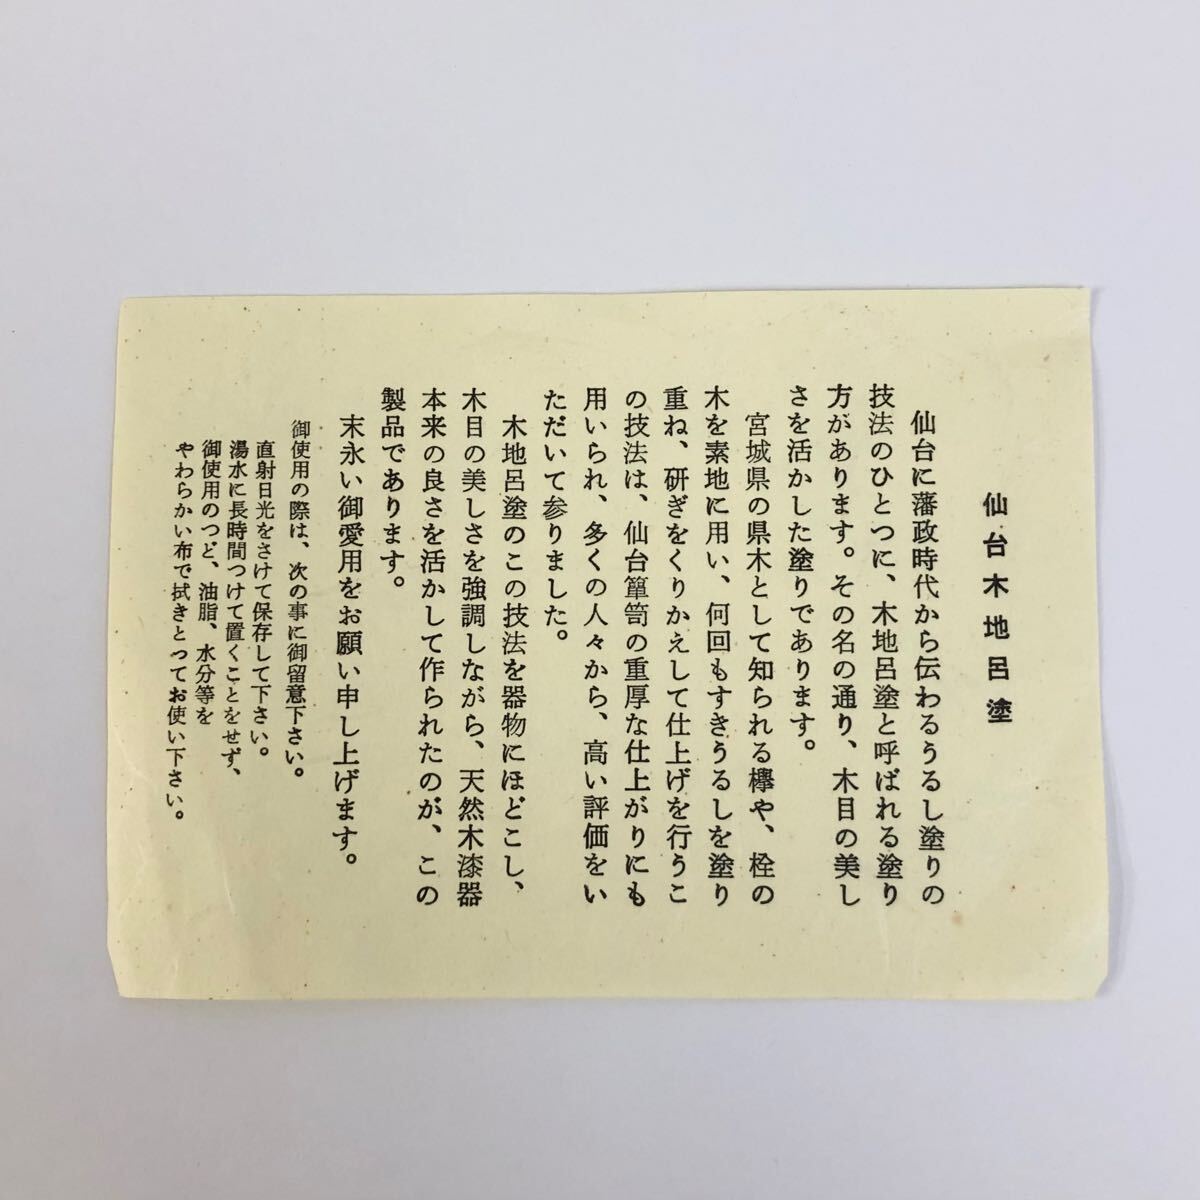 仙台木地呂塗
仙台に藩政時代から伝わるうるし塗りの
技法のひとつに、木地呂塗と呼ばれる塗り
方があります。その名の通り、木目の美し
さを活かした塗りであります。
宮城県の県木として知られる欅や、栓の
木を素地に用い、何回もすきうるしを塗り
重ね、研ぎをくりかえして仕上げを行うこ
の技法は、仙台簞笥の重厚な仕上がりにも
用いられ、多くの人々から、高い評価をい
ただいて参りました。
木地呂塗のこの技法を器物にほどこし、
木目の美しさを強調しながら、天然木漆器
本来の良さを活かして作られたのが、この
製品であります。
末永い御愛用をお願い申し上げます。
御使用の際は、次の事に御留意下さい。
直射日光をさけて保存して下さい。
湯水に長時間つけて置くことをせず、
御使用のつど、油脂、水分等を
やわらかい布で拭きとってお使い下さい。